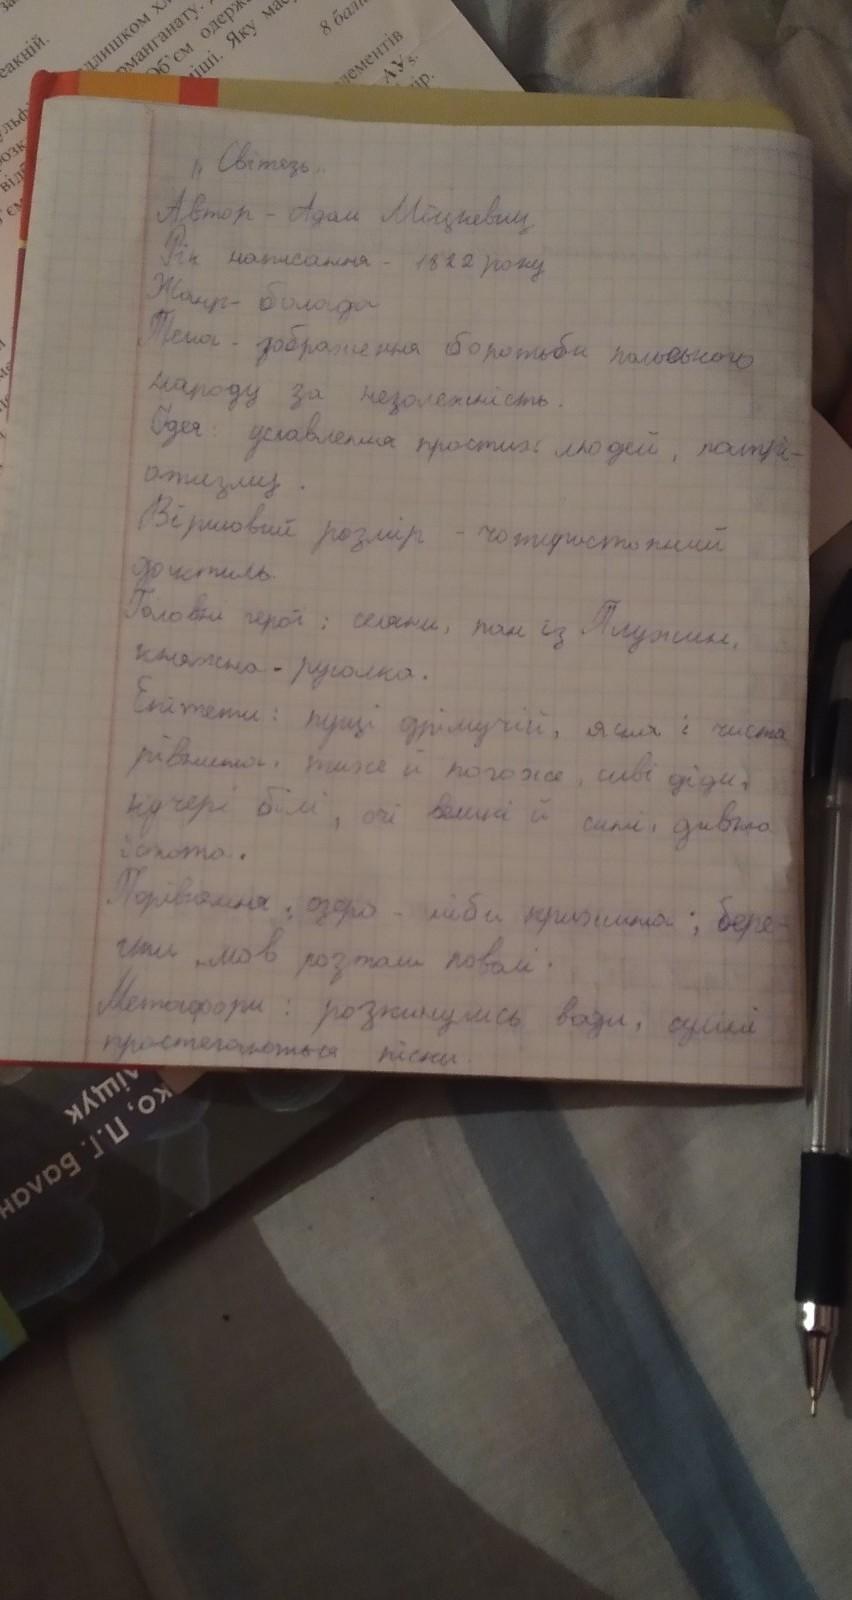 еакній.
длишком хл
рманганату.
Об'єм одержа
міші. Яку мас
8 бал
лементів
„Світязь„
Автор - Адам Міцкевич
Рік написання - 1822 року
Жанр - балада
Тема - зображення боротьби польського
народу за незалежність.
Ідея: уславлення простих людей, патрі-
отизму.
Віршовий розмір - чотиристопний
дактиль.
Головні герої: селяни, пан із Плужин,
княжна - русалка.
Епітети: пущі дрімучій, ясна і чиста
рівнина, тихе й погоже, сиві діди,
білі, очі великі й сині, дивна
істота.
Порівняння: озеро - ніби крижина; бере-
ги, мов розталі повалі.
Метафори: розкинулись води, сумні
простягаються піски.
ко, П.Г. Балан
іщук